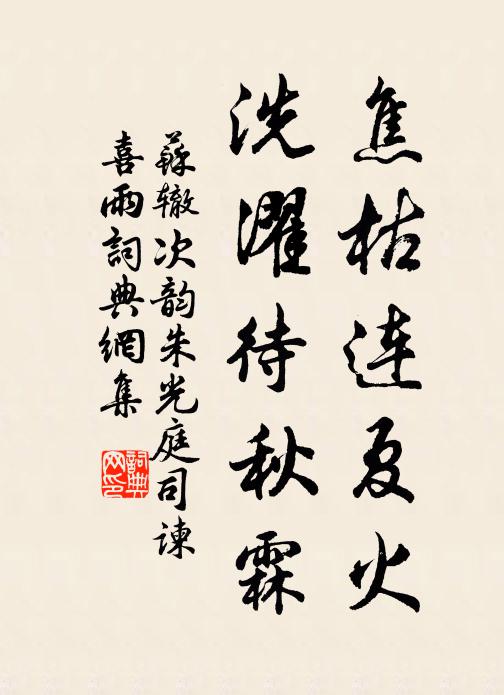 焦枯連夏火
洗濯待秋霖
蘇轍次韵朱光庭司諫
喜雨詞典網集
詞典
网印